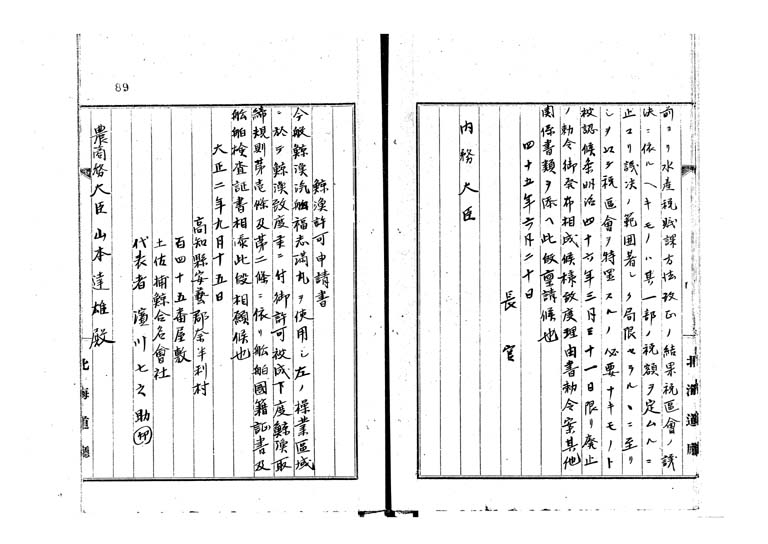 前ヨリ水産税賦課方法改正ノ結果税區會ノ議
決ニ依ルヘキモノハ其一部ノ税額ヲ定ムルニ
止マリ議決ノ範囲著シク局限セラルヽニ至リ
シヲ以テ税區會ヲ特置スルノ必要ナキモノト
被認候条明治四十六年三月三十一日限リ廃止
ノ勅令御発布相成候様致度理由書勅令案其他
関係書類ヲ添ヘ此段稟請候也
四十五年六月二十日
長官
内務大臣
北海道廳
89
鯨漁許可申請書
今般鯨漁汽船福志満丸ヲ使用シ左ノ操業區域
ニ於テ鯨漁致度キニ付御許可被成下度鯨漁取
締規則第壱條及第二條ニ依リ船舶國籍証書及
船舶検査証書相添此段相願候也
大正二年九月十五日
高知縣安藝郡奈半利村
百四十五番屋敷
土佐捕鯨合名會社
代表者 濱川七之助 印
農商務大臣山本達雄殿
北海道廳